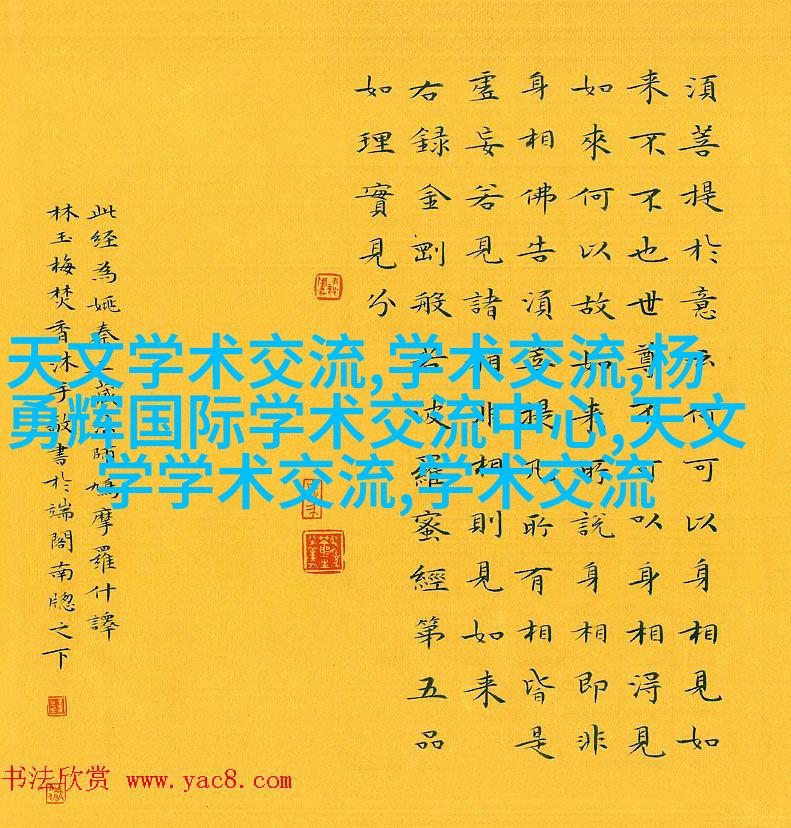 須菩提於意云何可以身相見如
来不不也世尊不可以身相得見
如來何以故如来所說身相即非
身相佛告須菩提凡所有相皆是
虛妄若見諸相非相則見如来
右録金剛般若波羅蜜經第五品
如理實見分
此经為姚秦三藏法師鳩摩羅什譯
林玉梅焚香沐手敬書於端閣南牕之下
天文学术交流,学术交流,杨
勇辉国际学术交流中心,天文
学学术交流,学术交流
书法欣赏 www.yac8.com